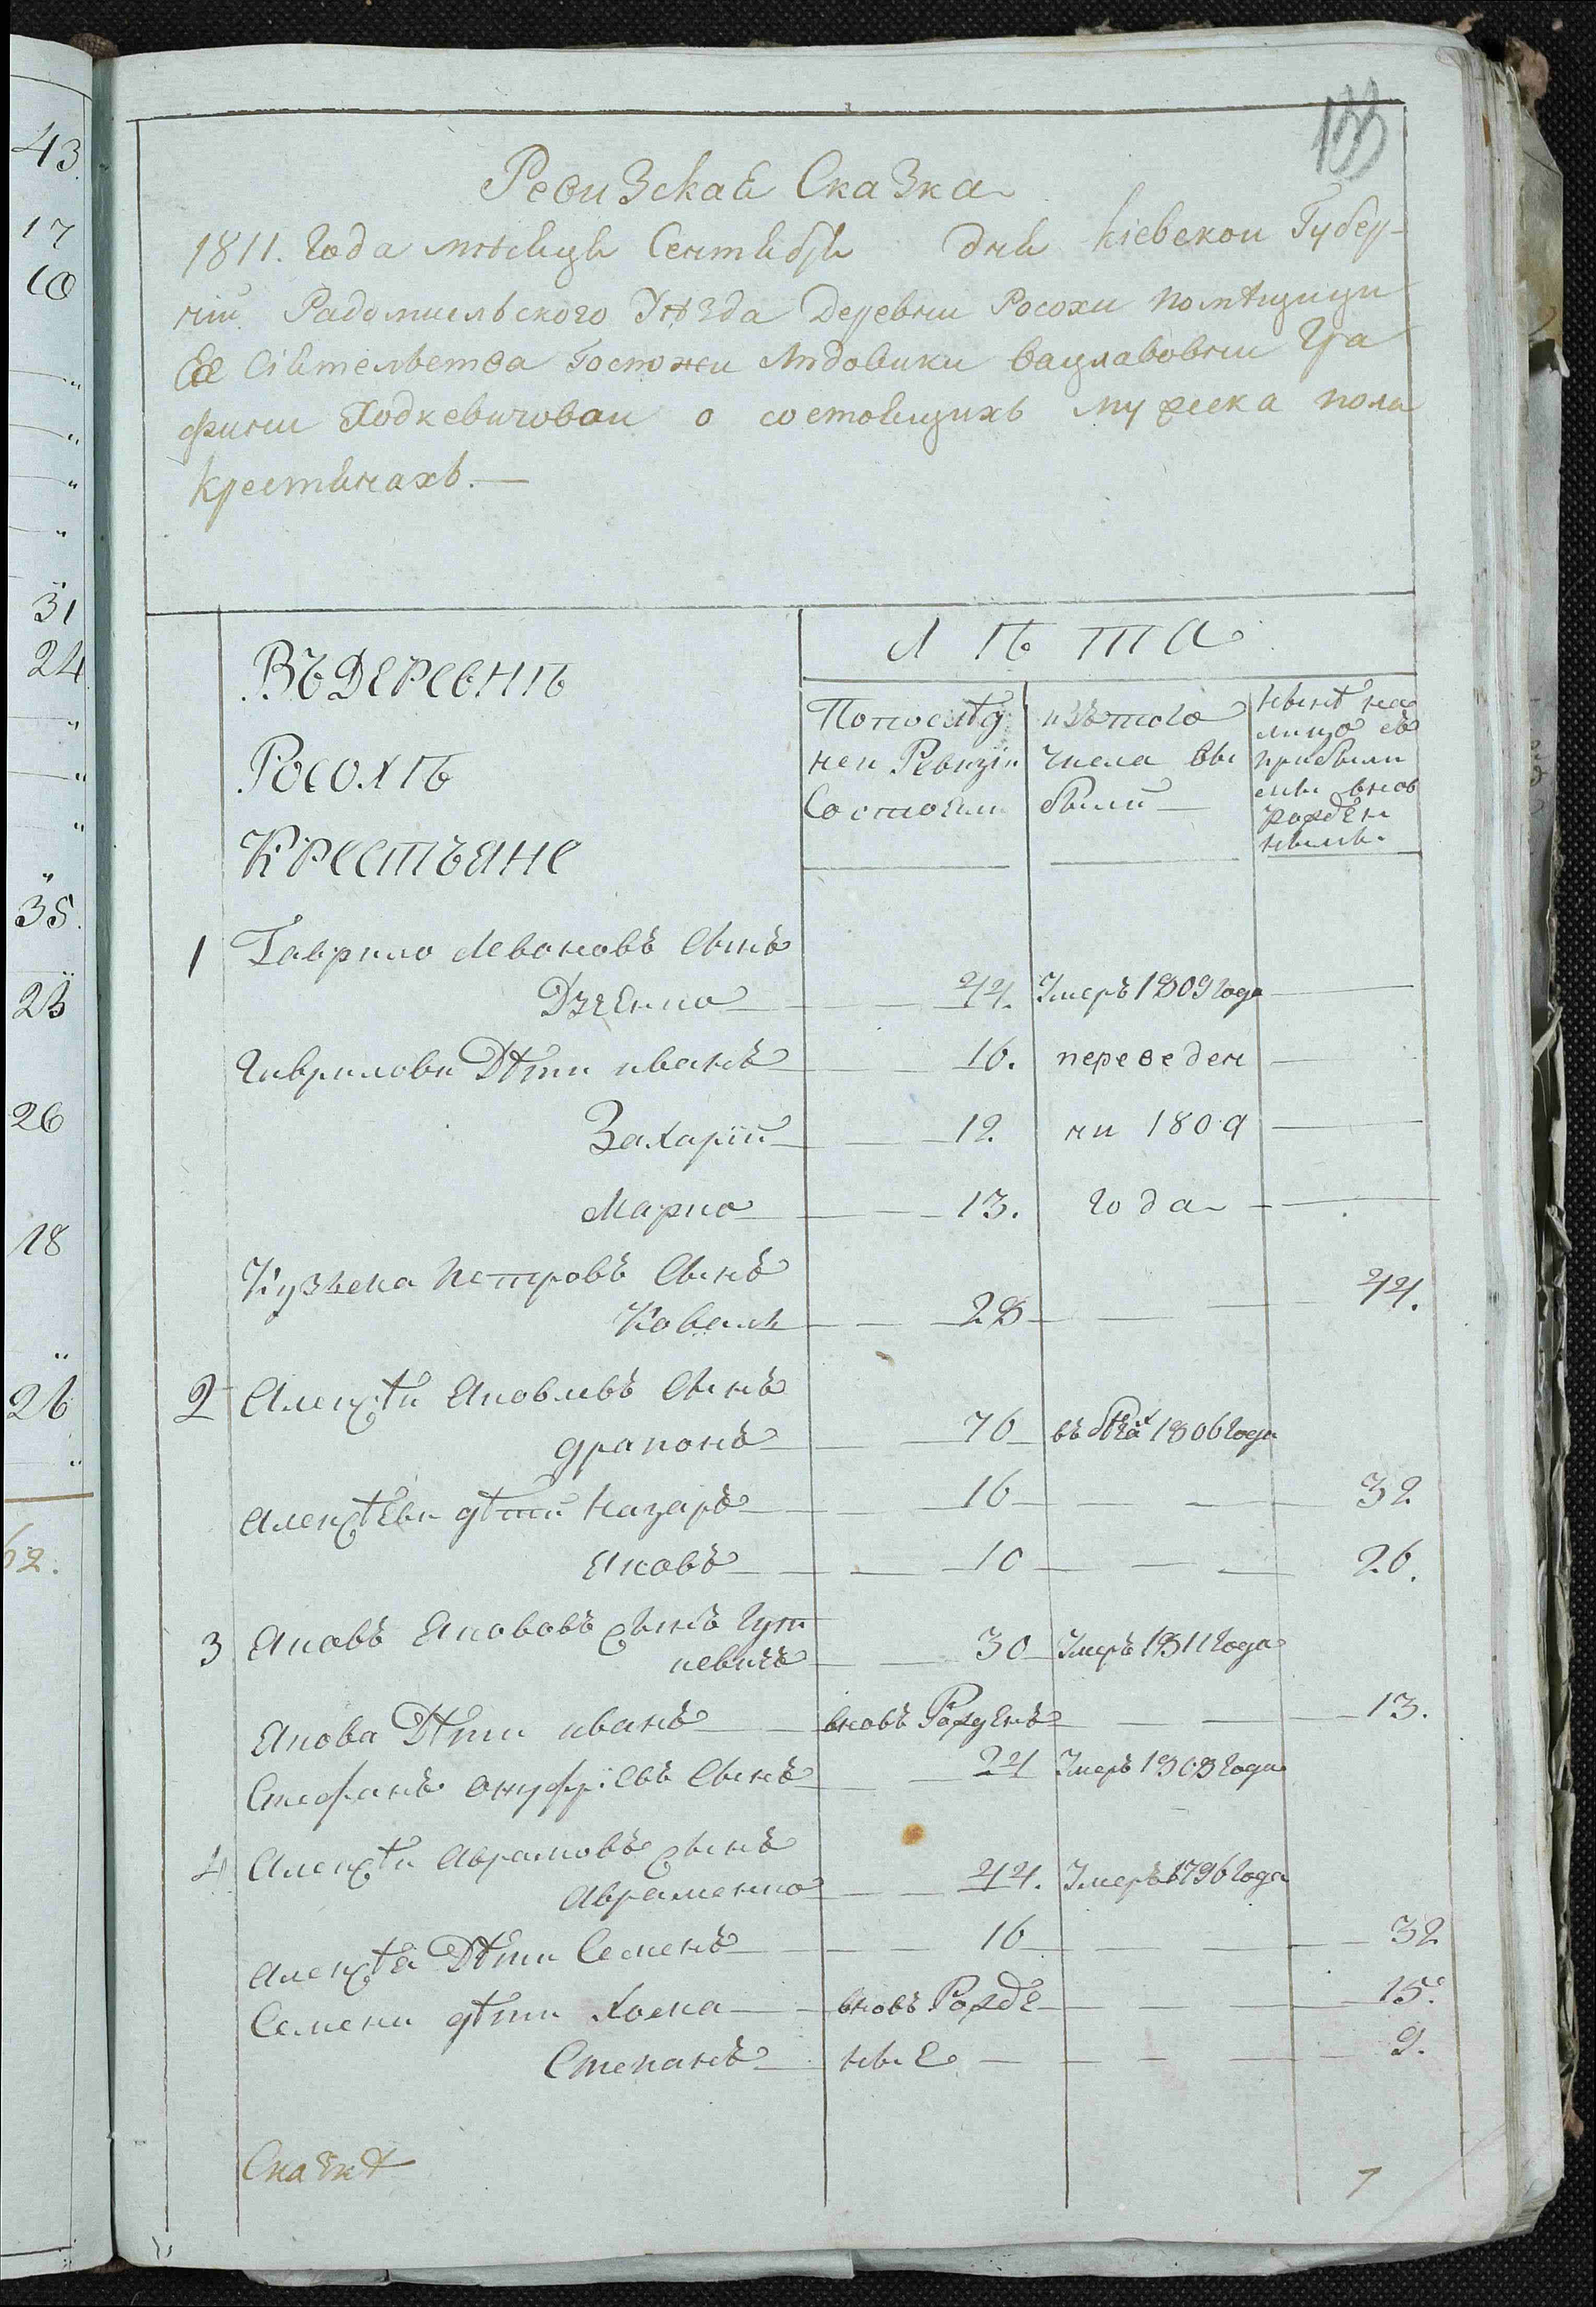 43.
17
10
31
24
35.
23
26
18
26
62.
133
Ревизская Сказка
1811. Года мѣсяца Сентября дня Кіевскои Губер-
ніи Радомысльского Уѣзда Деревни Росохи помѣщици
Ее Сіятельства Госпожи Людовики Вацлавовни Гра
фини Ходкевичовои о состоящихъ мужеска пола
крестянахъ.—
Въ Деревнѣ
Росохѣ
Крестъяне
Лѣта
Попослѣд
неи Ревизіи
Состояли
изътого
числа вы
были
нынѣ на
лицо съ
прибыли
ми внов
рожден
ными.
1 Гаврило Левоновъ Сынъ
Дзгенко 44. Умеръ 1809 Года
Гаврилови Дѣти иванъ 16. переведен
Захарій 12 ни 1809
Марко 13. года
Кузьма Петровъ Сынъ
Коваль 28 44.
2 Алексѣи Яковлевъ Сынъ
драпонъ 76 въ бѣгах 1806 Года
Алексѣеви дѣти Назаръ 16 32
Яковъ 10 26.
3 Яковъ Якововъ Сынъ Гут
невичъ 30 Умеръ 1811 Года
Якова Дѣти иванъ вновь Рожденъ 13.
Стефанъ Онуфріевъ Сынъ 24 Умеръ 1808 Года
4 Алексѣи Аврамовъ Сынъ
Авраменко 44. Умеръ 1796 Года
Алексѣя Дѣти Семенъ 16 32
Семена дѣти Хома вновь Рожде 15.
Степанъ ные 9.
Сказкѣ 7